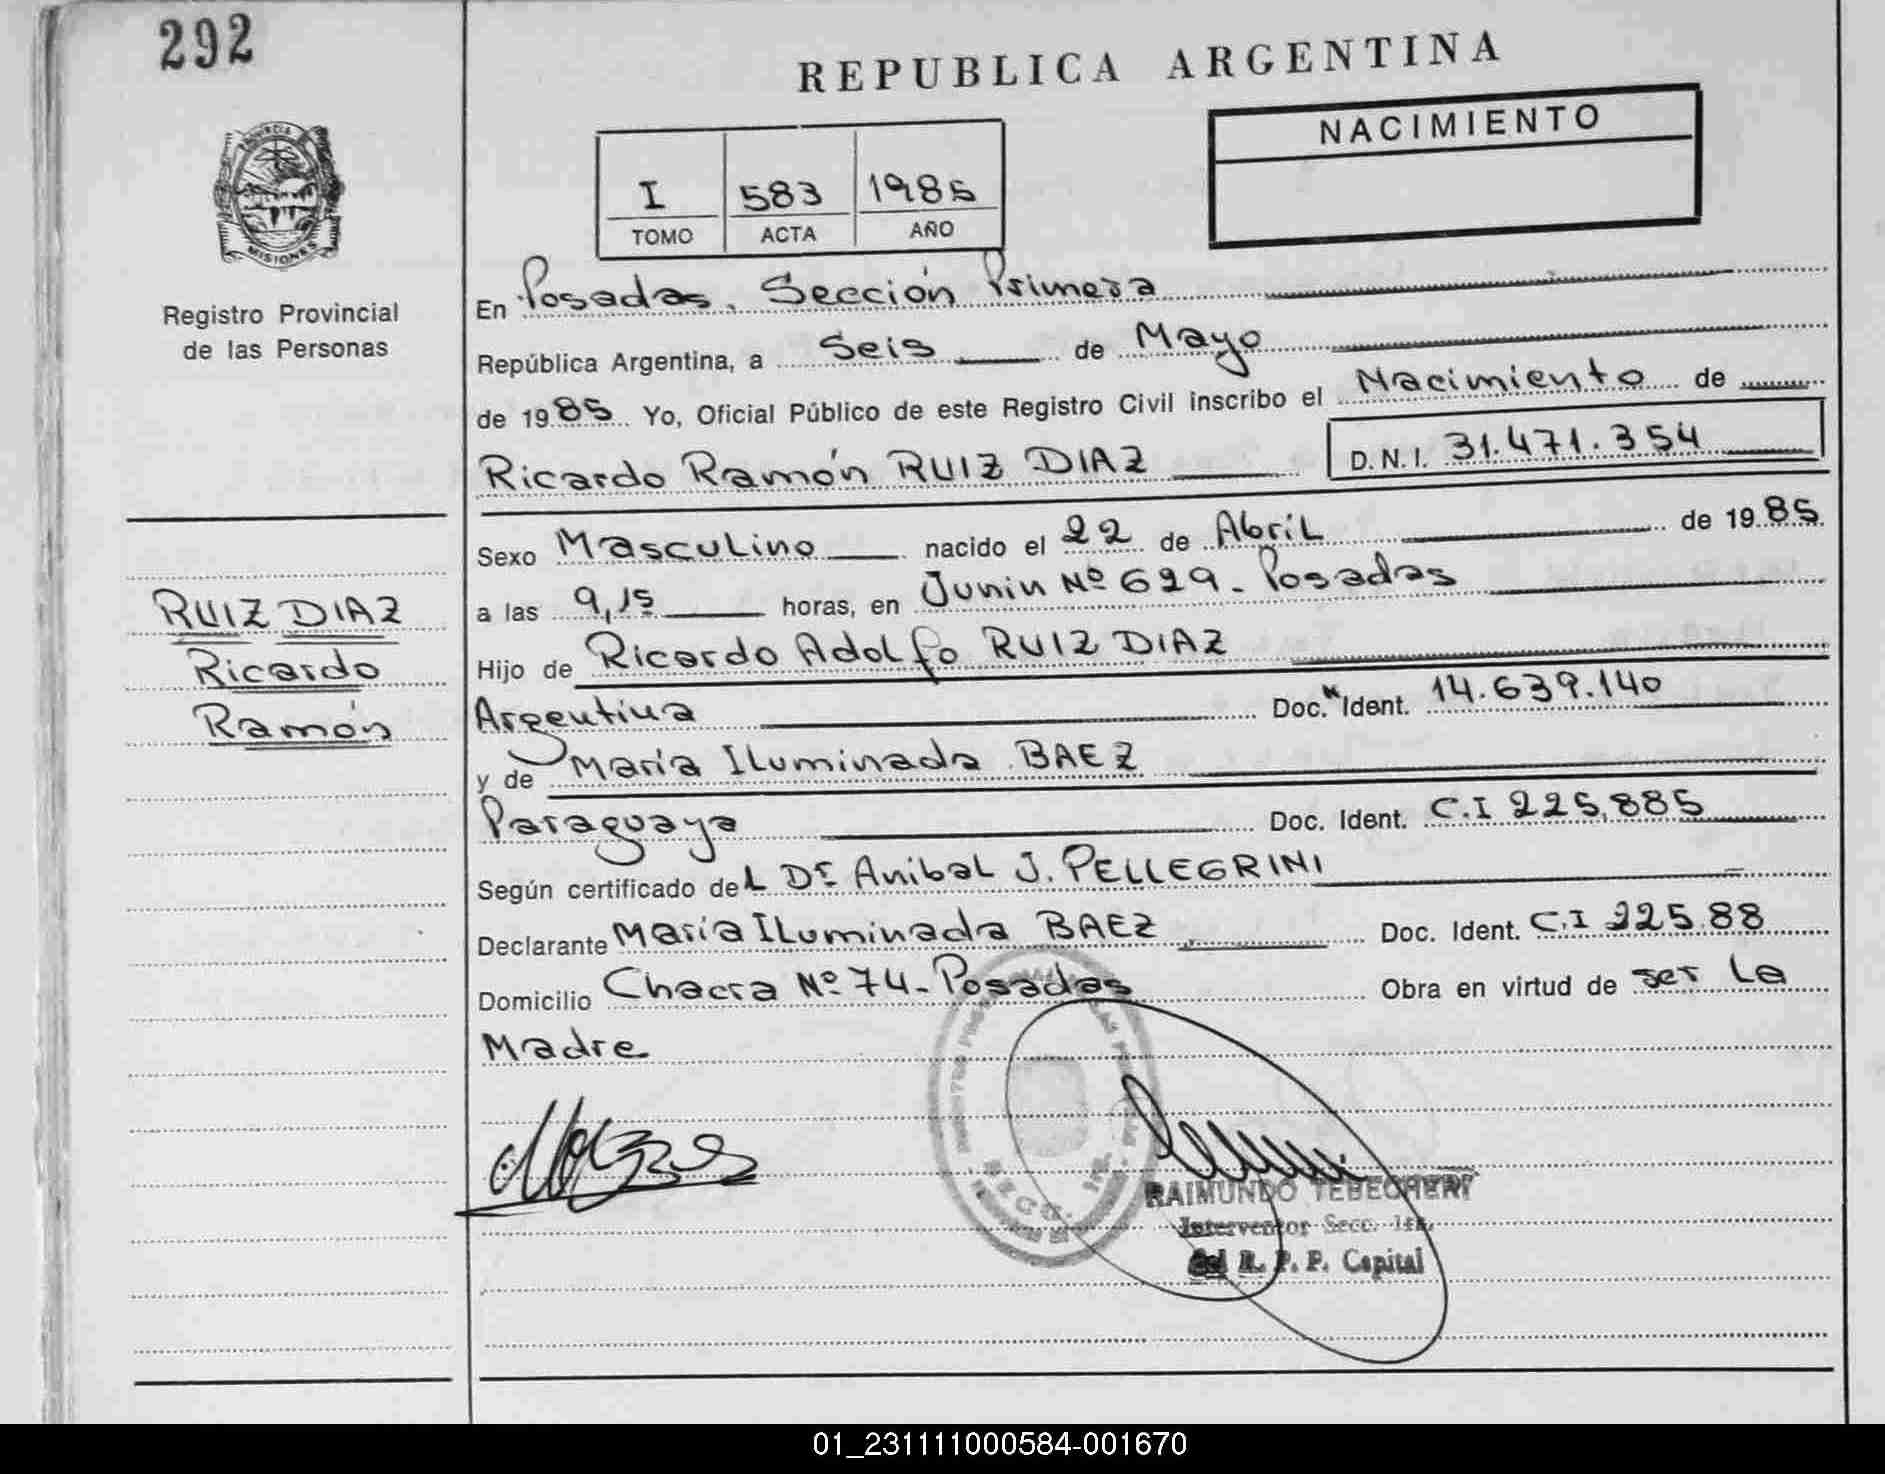 292
REPUBLICA ARGENTINA
NACIMIENTO
I 583 1985
TOMO ACTA AÑO
PROVINCIA
MISIONES
Registro Provincial
de las Personas
En Posadas. Sección Primera
República Argentina, a Seis de Mayo
de 1985 Yo, Oficial Público de este Registro Civil inscribo el Nacimiento de
Ricardo Ramón RUIZ DIAZ D.N.I. 31.471.354
Sexo Masculino nacido el 22 de Abril de 1985
a las 9,15 horas, en Junin Nº 629 - Posadas
Hijo de Ricardo Adolfo RUIZ DIAZ
Argentina Doc. N Ident. 14.639.140
y de María Iluminada BAEZ
Paraguaya Doc. Ident. C.I 225.885
Según certificado del Dr Anibal J. PELLEGRINI
Declarante María Iluminada BAEZ Doc. Ident. C.I 225.88
Domicilio Chacra Nº 74 - Posadas Obra en virtud de ser la
Madre
RUIZ DIAZ
Ricardo
Ramón
RAIMUNDO TEBECHERI
Interventor Secc. 1ra.
del R. P. P. Capital
01_231111000584-001670